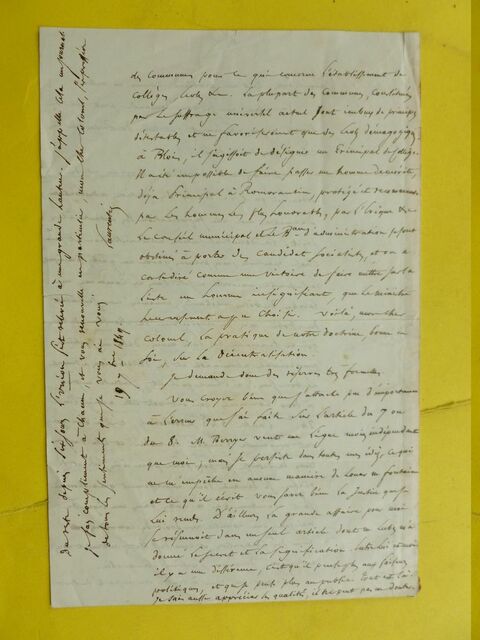 des communes pour ce qui concerne l'établissement de
collèges, écoles &c. La plupart des communes, constituées
par le suffrage universel actuel sont imbues de principes
détestables et ne favorisent que des écoles démagogiques
à Blois, il s'agissoit de désigner un Principal du Collège.
Il a été impossible de faire passer un homme de mérite,
déjà Principal à Romorantin, protégé et recommandé
par les hommes les plus honorables, par l'Evêque &c
Le conseil municipal et le Bureau d'administration se sont
obstinés à porter des candidats socialistes, et on a
considéré comme une victoire de faire mettre sur la
liste un homme insignifiant que le ministre
heureusement a pu choisir. Voilà, mon cher
colonel, la pratique de notre doctrine, bonne en
soi, sur la Décentralisation.
Je demande donc des réserves les formules
Vous croyez bien que j'attache peu d'importance
à l'erreur que j'ai faite sur l'article du 7 ou
du 8. M. Berryer veut une Ligue moins indépendante
que moi, mais je persiste dans toutes mes idées, ce qui
ne m'empêche en aucune manière de louer m. fontaine
et ce qu'il écrit vous savez bien la justice que je
lui rends. D'ailleurs la grande affaire pour moi
se résumoit dans un seul article dont
donne le secret et la signification entre lui et moi
il y a une différence, c'est qu'il
politiques, et que je parle plus au public. Tout est là.
Je sais aussi apprécier les qualités, il ne peut pas en douter.
du reste depuis l'union s'est relevée à une grande hauteur. J'appelle cela
je fais compliment à chacun, et vous renouvelle en particulier, mon cher Colonel, l'expression
de tous les sentiments que je vous ai voués
Laurentie
19 7bre 1849.